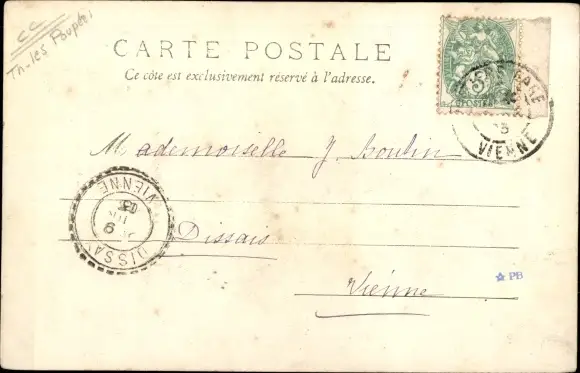 CC
Th. les Poupées
CARTE POSTALE
Ce côté est exclusivement réservé à l'adresse.
POSTES
GARE
VIENNE
Mademoiselle J. Boulin
VIENNE
DISSAY
Dissais
Vienne
PB